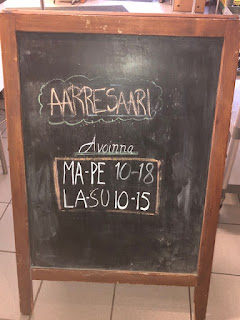 AARRESAARI
Avoinna
MA-PE 10-18
LA-SU 10-15